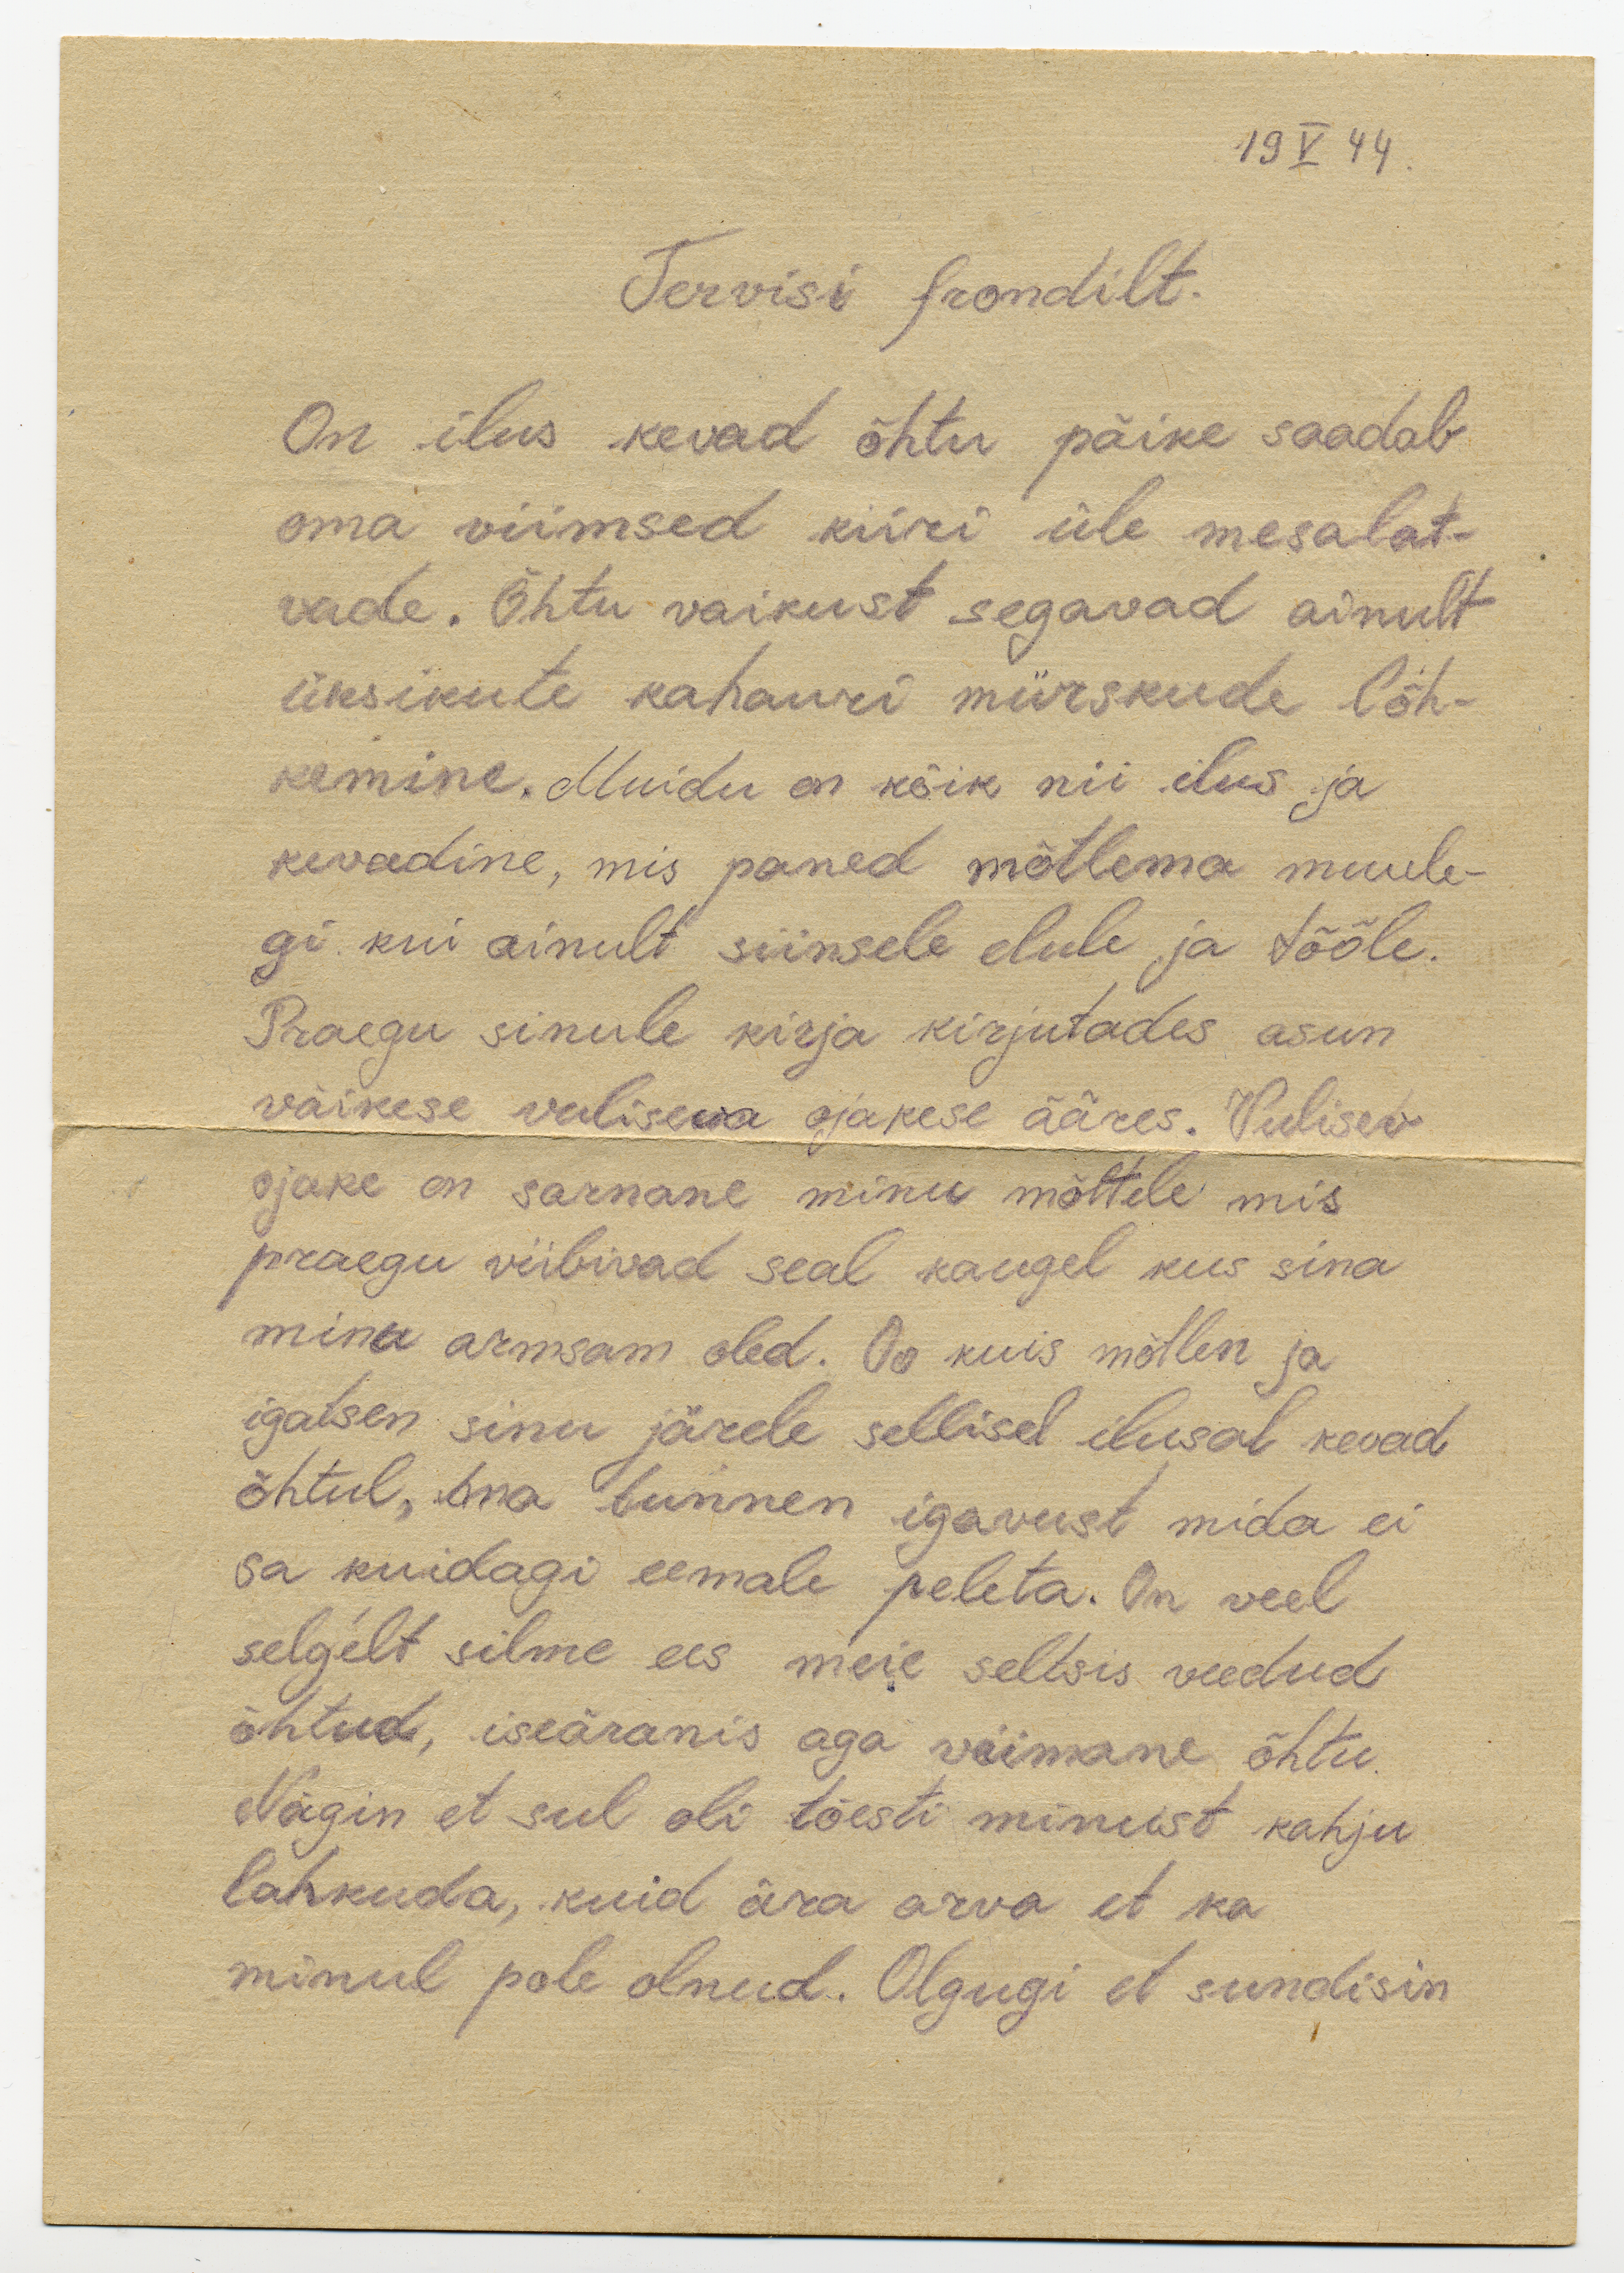 19 V 44.
Tervisi frondilt.
On ilus kevad õhtu päike saadab
oma viimsed kiiri üle mesalat-
vade. Õhtu vaikust segavad ainult
üksikute kahauri mürskude lõh-
kemine. Muidu on kõik nii ilus ja
kevadine, mis paned mõtlema muule-
gi kui ainult siinsele elule ja tööle.
Praegu sinule kirja kirjutades asun
väikese vuliseva ojakese ääres. Vulisev
ojake on sarnane minu mõttele mis
praegu viibivad seal kaugel kus sina
minu armsam oled. Oo kuis mõtlen ja
igatsen sinu järele sellisel ilusal kevad
õhtul, ma tunnen igavust mida ei
sa kuidagi eemale peleta. On veel
selgelt silme ees meie seltsis veedud
õhtud, iseäranis aga viimane õhtu.
Nägin et sul oli tõesti minust kahju
lahkuda, kuid ära arva et ka
minul pole olnud. Olgugi et sundisin